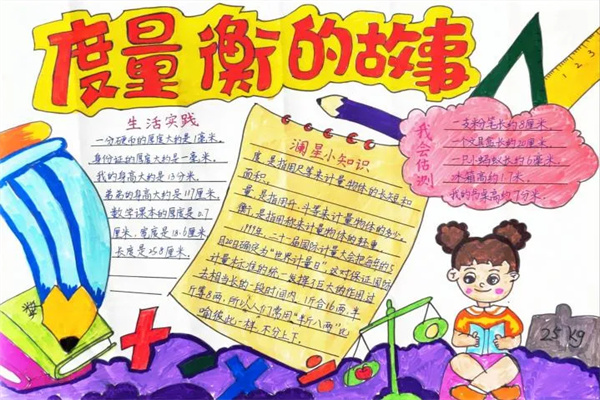 度量衡的故事
生活实践
一分硬币的厚度大约是1毫米.
身份证的厚度大约是一毫米.
我的身高大约是13分米.
弟弟的身高大约是117厘米.
数学课本的厚度是0.7
厘米、宽度是18.6厘米
长度是25.8厘米.
澜星小知识
度是指用尺等来计量物体的长短和
面积.
量是指用升、斗等来计量物体的多少.
衡是指用称来计量物体的轻重
1999年、二十一届国际计量大会把每年的5
月20日确定为"世界计量日",这对保证国际
计量标准的统一、发挥了巨大的作用过
去相当长的一段时间内、1斤合16两,半
斤等8两,所以人们常用"半斤八两"比
喻彼此一样、不分上下.
我会估测
一支粉笔长约8厘米.
一个文具盒长约2厘米.
一只小蚂蚁长约6毫米
冰箱高约1.7米.
我的书桌高约7分米.
数学
1 2 3
25 kg